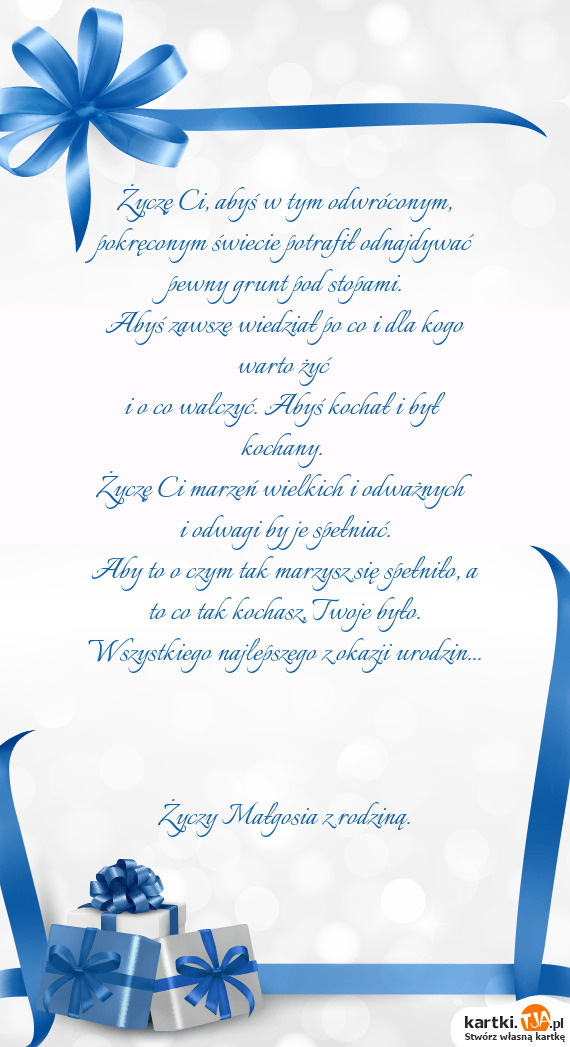 Życzę Ci, abyś w tym odwróconym,
pokręconym świecie potrafił odnajdywać
pewny grunt pod stopami.
Abyś zawsze wiedział po co i dla kogo
warto żyć
i o co walczyć. Abyś kochał i był
kochany.
Życzę Ci marzeń wielkich i odważnych
i odwagi by je spełniać.
Aby to o czym tak marzysz się spełniło, a
to co tak kochasz, Twoje było.
Wszystkiego najlepszego z okazji urodzin...
Życzy Małgosia z rodziną.
kartki.TJA.pl
Stwórz własną kartkę